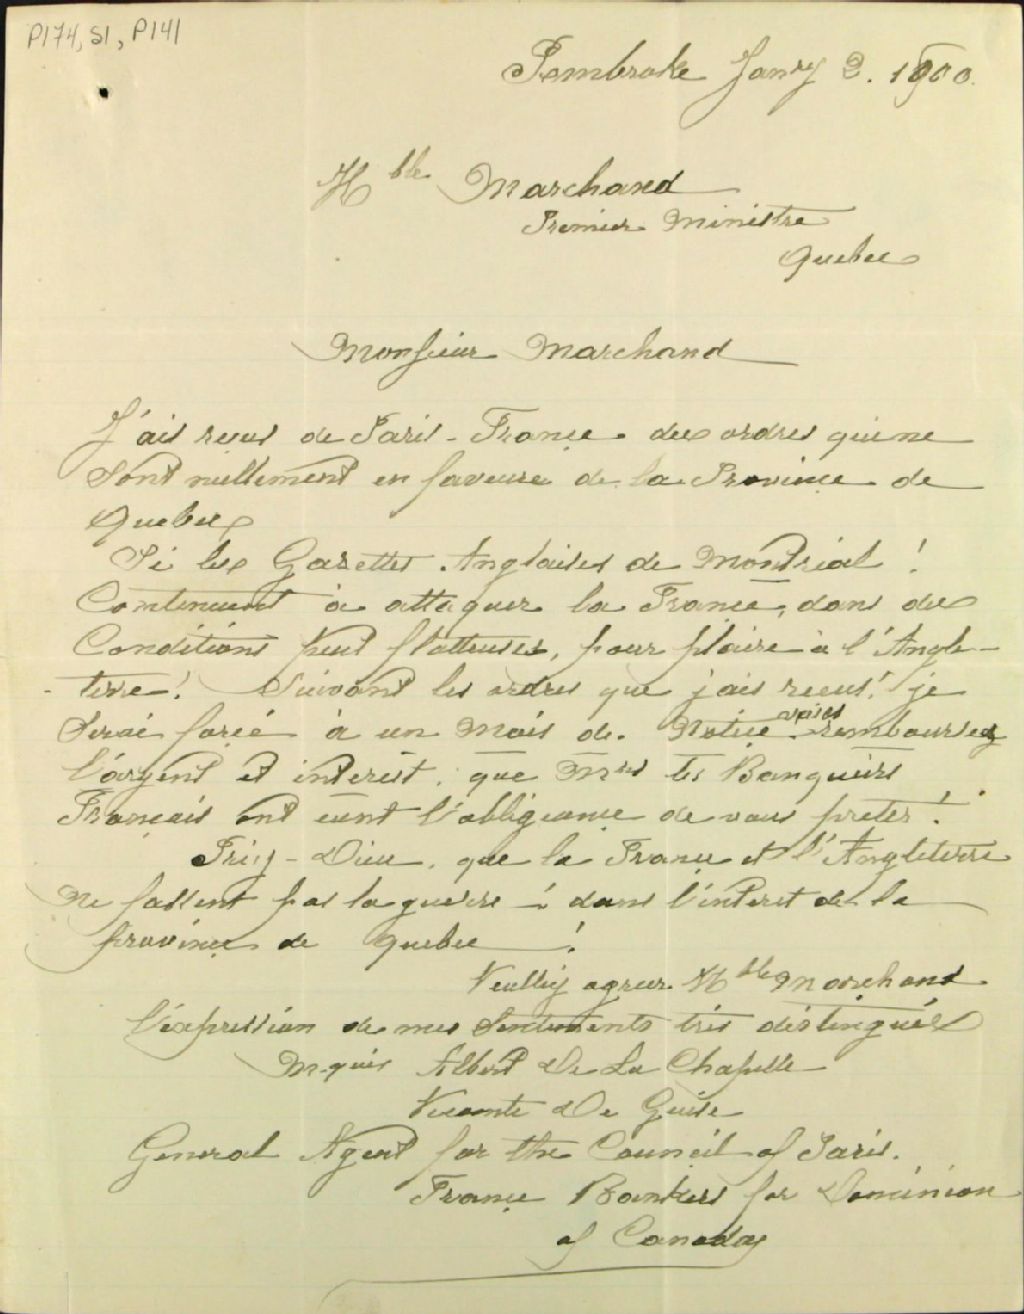 P174, S1, P141
Pembroke Janry 2. 1900.
Hble Marchand
Premier Ministre
Quebec
Monsieur Marchand
J'ais reçus de Paris - France. des ordres qui ne
sont nullement en faveure de la Province de
Quebec
Si les Gazettes Anglaises de Montréal !
Continuent à attaquer la France, dans des
Conditions peut flatteuses, pour plaire à l'Angle-
-terre! Suivant les ordres que j'ais reçus! je
serai forcé à un Mois de Notice vous remboursez
l'argent et interest, que Mrs les Banquiers
Français ont eunt l'obligeance de vous preter!
Priez-Dieu, que la France et l'Angleterre
Ne fassent pas la guerre - ! dans l'interet de la
province de Quebec !
Veulliez agreer Hble Marchand
l'expression de mes sentiments très distingués
M-quis Albert De La Chapelle
Vicomte De Guise
General Agent for the Council of Paris.
France Bankers for Dominion
of Canada